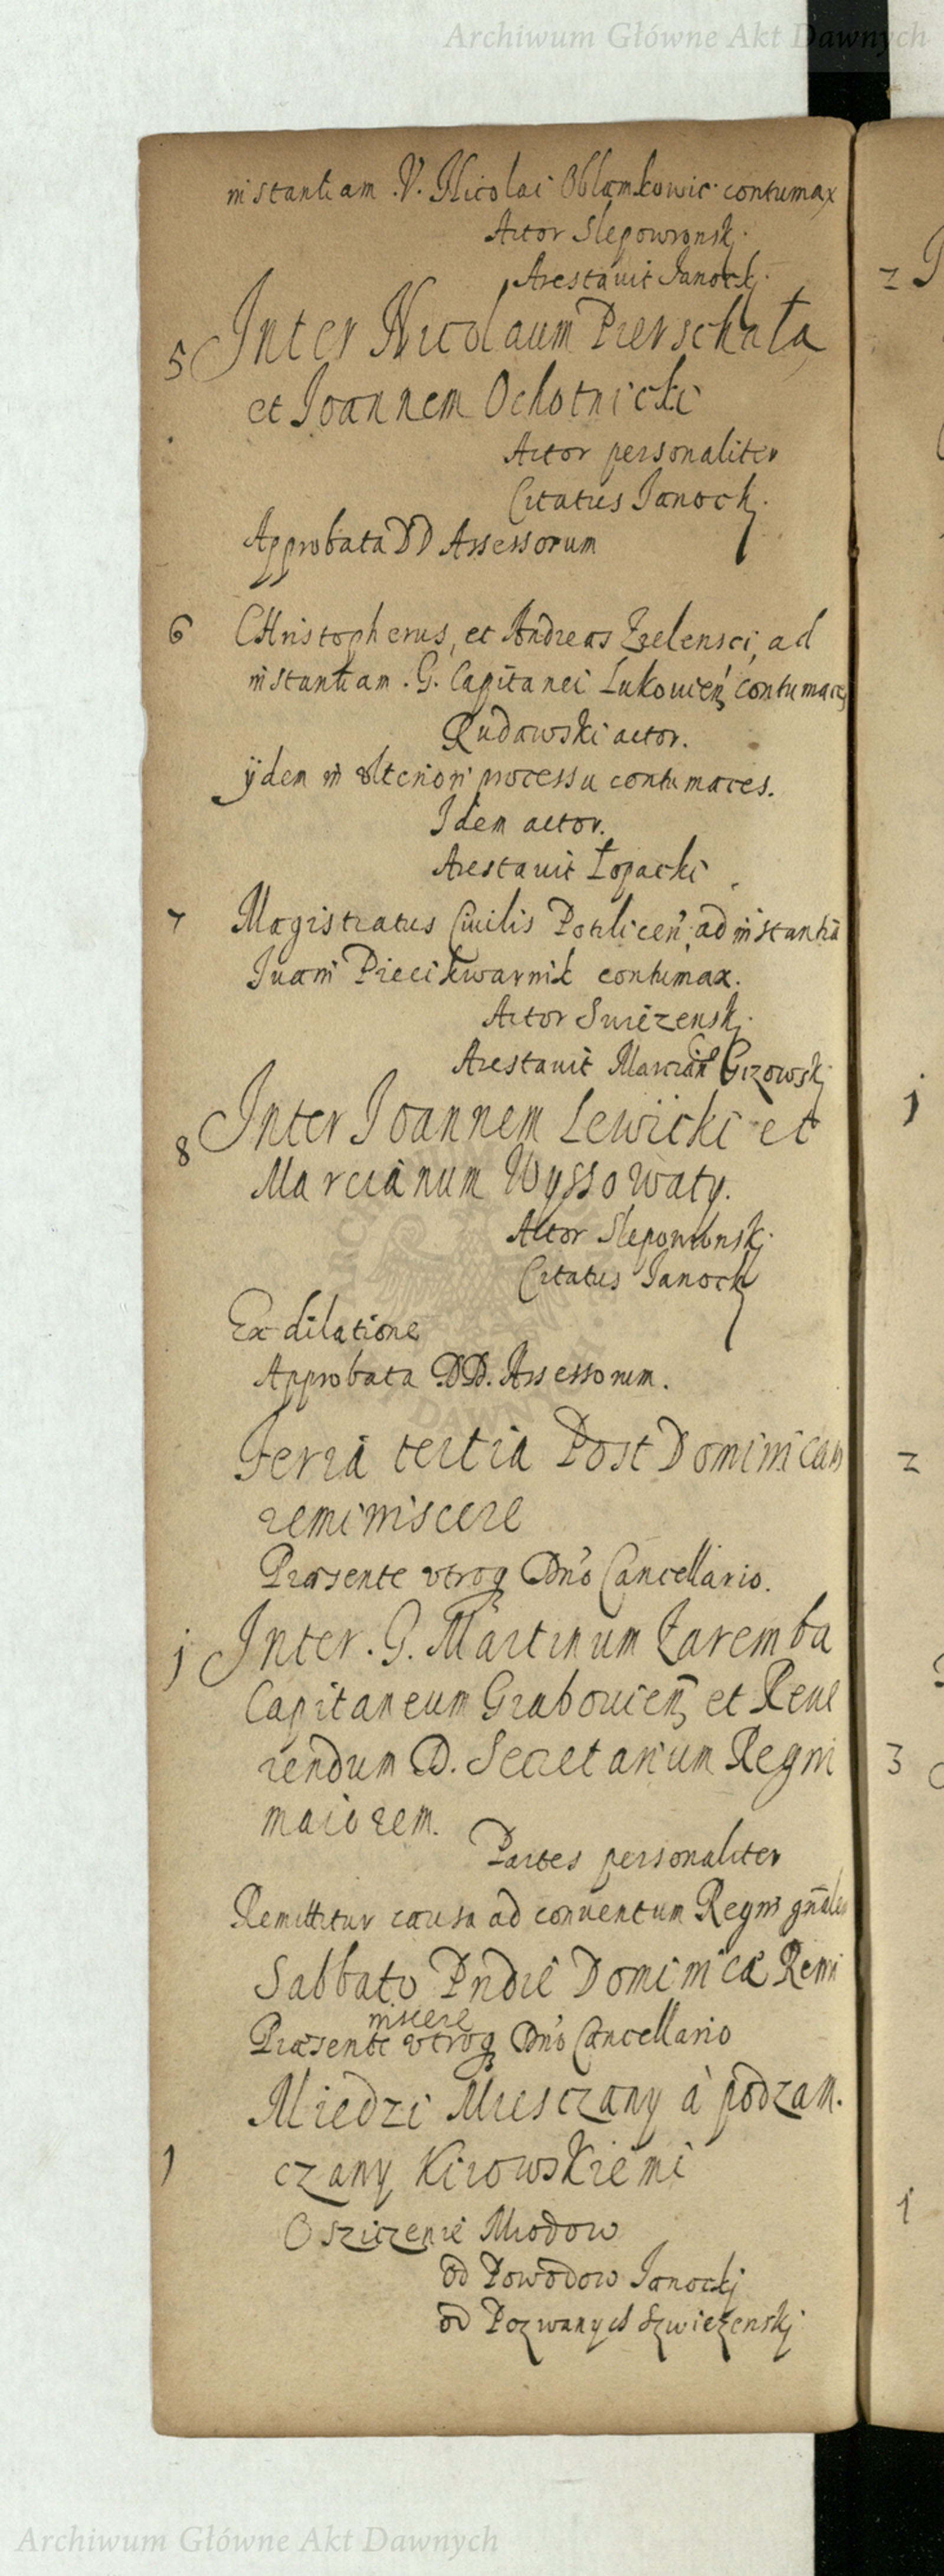 Archiwum Główne Akt Dawnych
instantiam .V. Nicolai Oblamkowic contumax
Actor Slepowronskj.
Arestauit Janockj.
5 Inter Nicolaum Pierschata
et Joannem Ochotnicki
Actor personaliter
Citatus Janockj.
Approbata DD Assessorum
6 CHristopherus, et Andreas Zelensci, ad
instantiam .G. Capitanei Lukouien contumaces
Rudawski actor.
ijdem in vlteriori processu contumaces.
Idem actor.
Arestauit Łopacki
7 Magistratus Ciuilis Potilicen, ad instantia
Iuani Pieci kwarnik contumax.
Actor Swiezenskj.
Arestauit Marcian Gizowskj
8 Inter Joannem Lewicki et
Marcianum Wyssowaty.
Actor Slepowronskj.
Citatus Janockj
Ex dilatione
Approbata DD. Assessorum.
Feria tertia Post Dominicam
reminiscere
Præsente vtroq Dno Cancellario.
j Inter .G. Martinum Zaremba
Capitaneum Grabouien et Reue
rendum D. Secretarium Regni
maiorem.
Partes personaliter
Remittitur causa ad conuentum Regni gnalem
Sabbato Pridie Dominicæ Remi
niscere
Præsente vtroq Dno Cancellario
Miedzi Miesczany à podzam.
1 czany Kirowskiemi
O sziczenie Miodow
od Powodow Janockj
od Pozwanych Szwiezenskj
Archiwum Główne Akt Dawnych